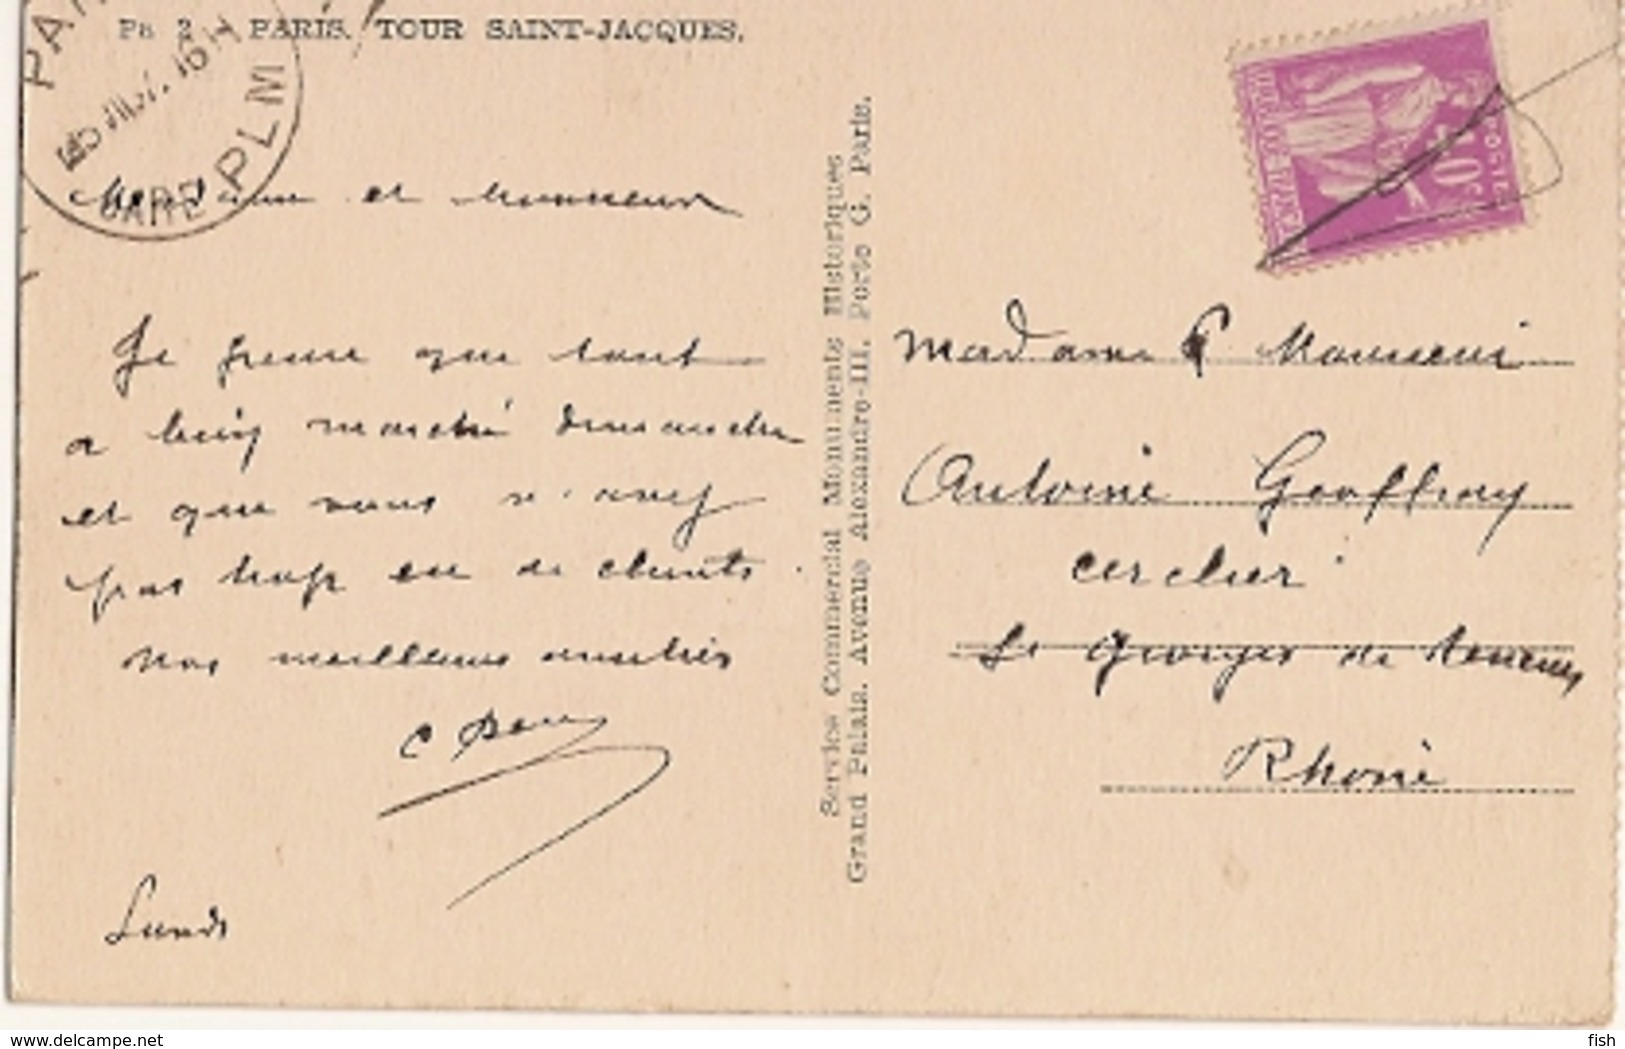 Pa 2 - PARIS. TOUR SAINT-JACQUES.
PAR
GARE PLM
Madame et Monsieur
Je pense que tout
a bien marché dimanche
et que vous n'avez
pas trop eu de clients.
Nos meilleures amitiés
Lundi
Service Commercial Monuments Historiques
Grand Palais. Avenue Alexandre-III. Porte G. Paris.
POSTES
Madame & Monsieur
Antoine Geoffray
cerclier
St Georges de Reneins
Rhône
delcampe.net
fish